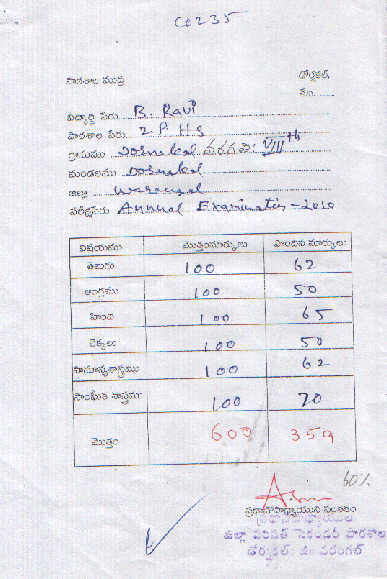 C0235
పాఠశాల ముద్ర డోర్నకల్,
నెం.
విద్యార్థి పేరు B. Ravi
పాఠశాల పేరు Z P H S
గ్రామము Dornakal తరగతి: VIIIth
మండలము Dornakal
జిల్లా Warangal
పరీక్షపేరు Annual Examination-2010
విషయము మొత్తంమార్కులు పొందిన మార్కులు
తెలుగు 100 62
ఆంగ్లము 100 50
హింది 100 65
లెక్కలు 100 50
సామాన్యశాస్త్రము 100 62
సాంఘీక శాస్త్రము 100 70
మొత్తం 600 359
60%
ప్రధానోపాధ్యాయుని సంతకం
ప్రధానోపాధ్యాయుడు
జిల్లా పరిషత్ సెకండరీ పాఠశాల
డోర్నకల్, జి. వరంగల్